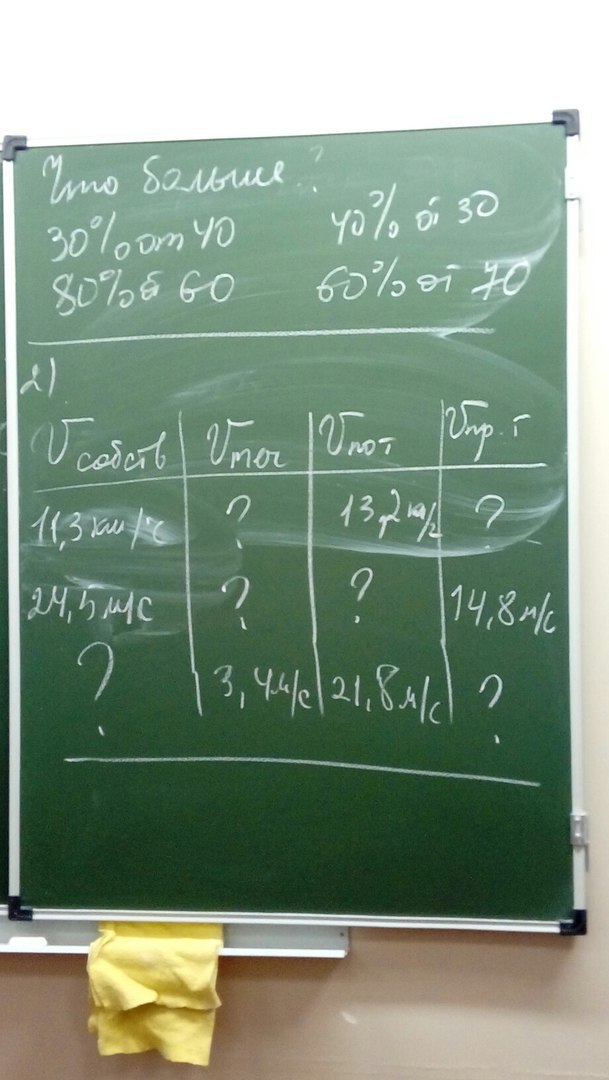 Что больше?
30% от 40 40% от 30
80% от 60 60% от 70
2)
Vсобств Vтеч Vпот Vпр.т
11,3 км/ч ? 13,2 км/ч ?
24,5 м/с ? ? 14,8 м/с
? 3,4 м/с 21,8 м/с ?